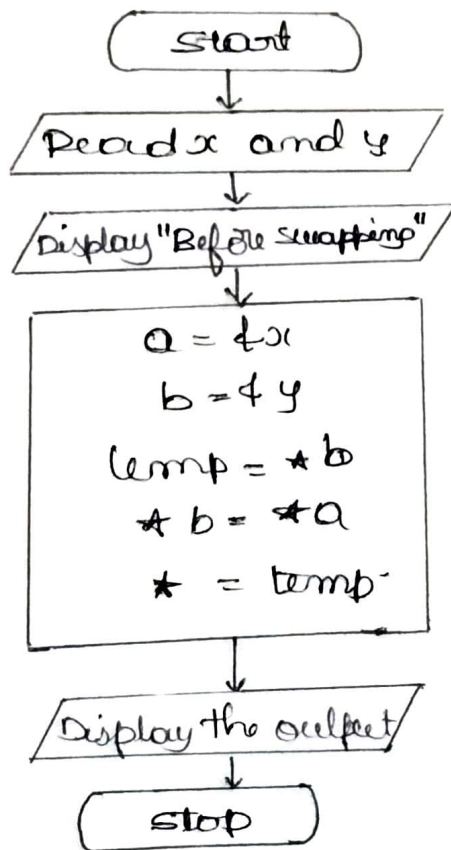 start
Read x and y
Display "Before swapping"
a = &x
b = &y
temp = *b
*b = *a
* = temp
Display the output
stop